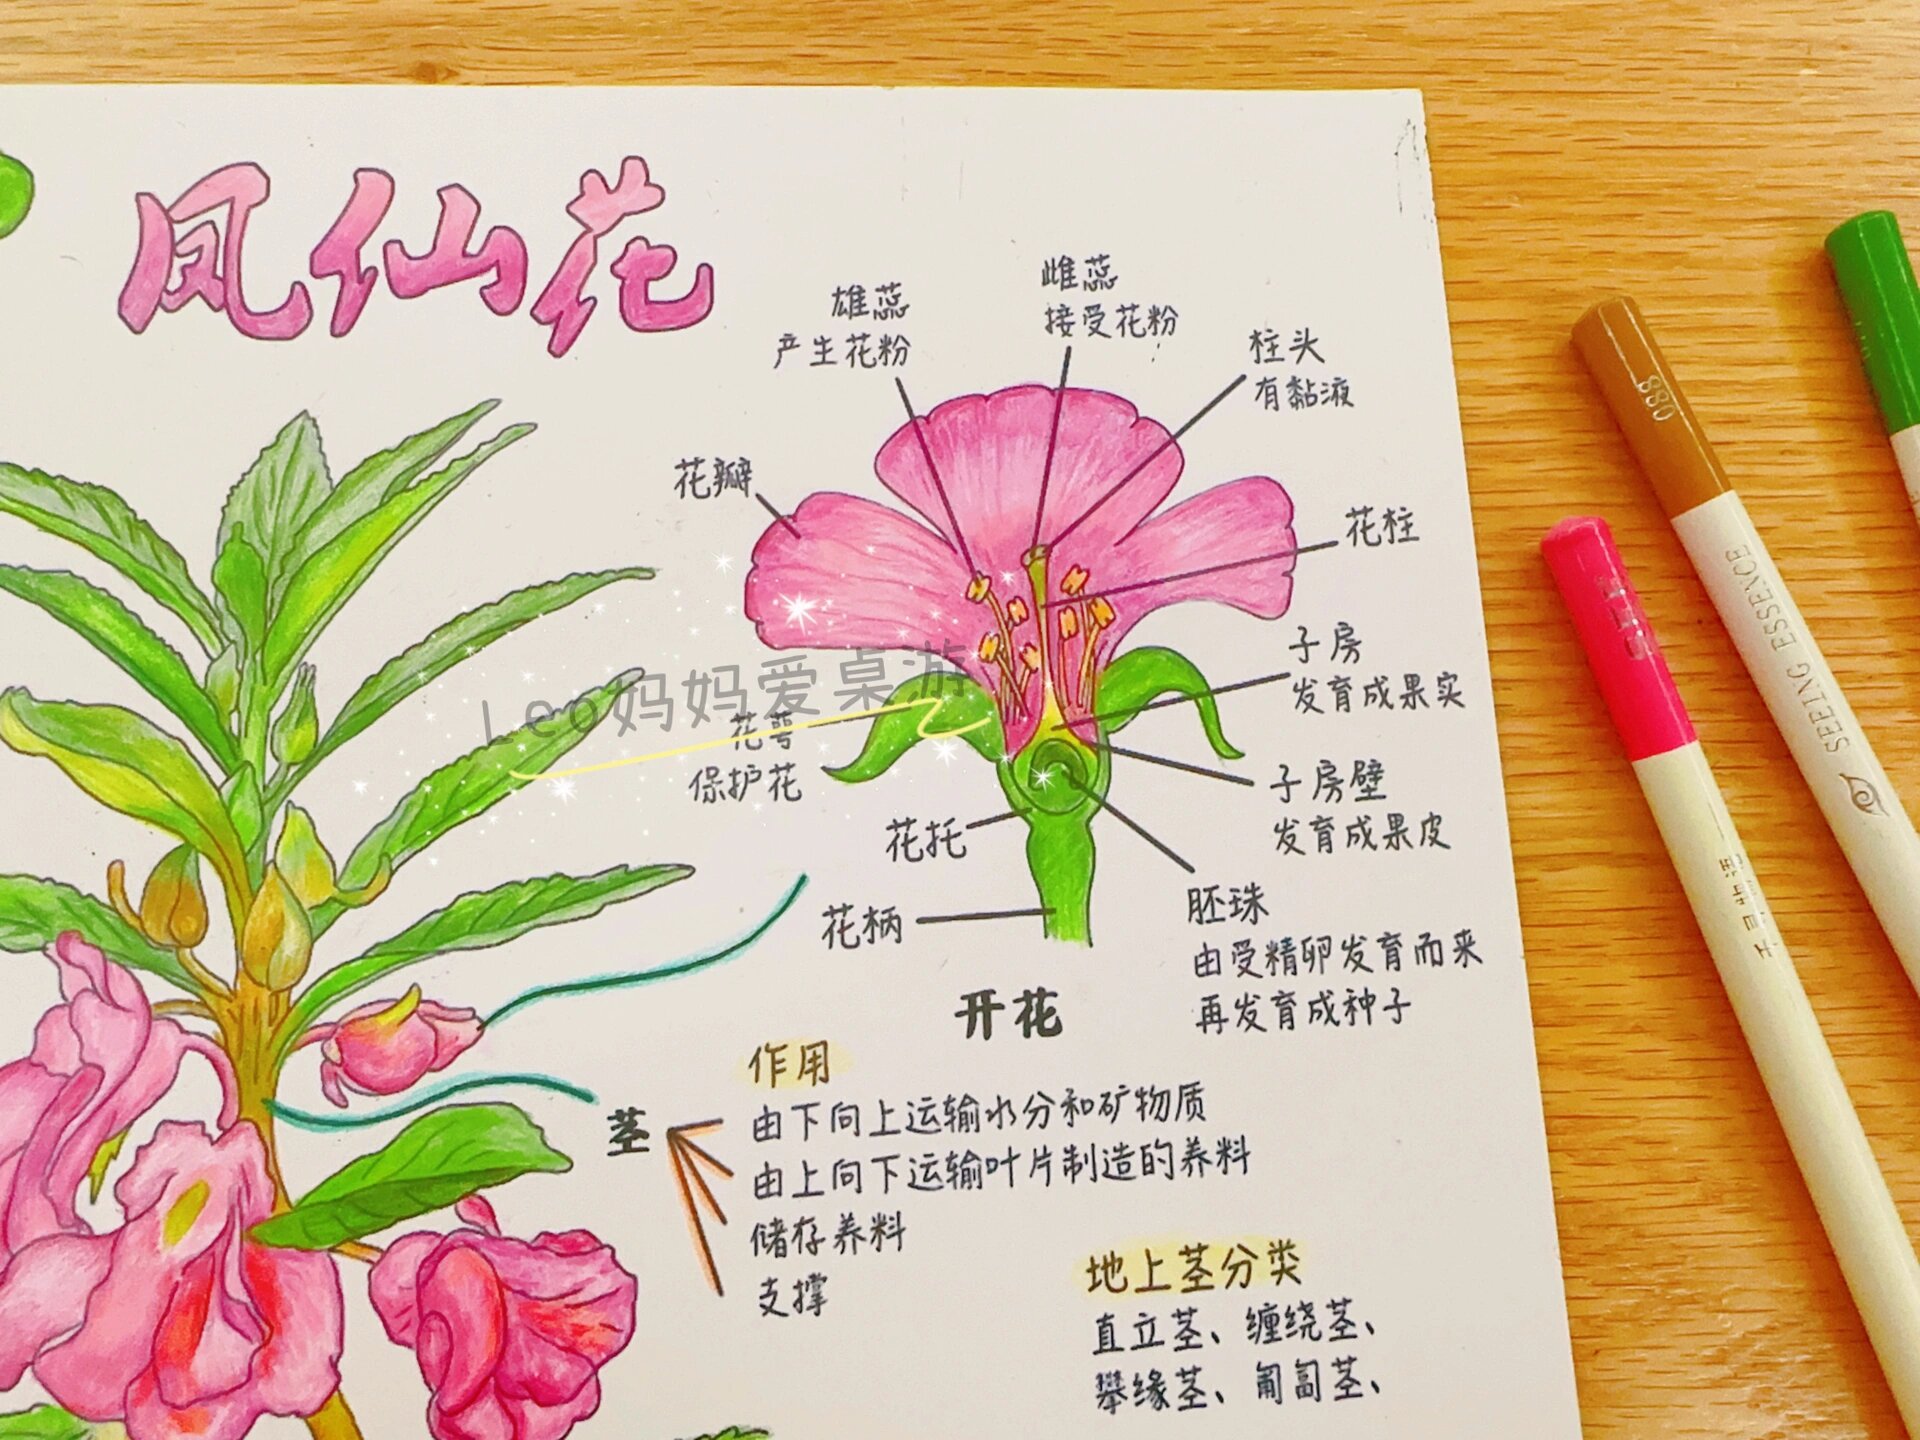 凤仙花
雄蕊
产生花粉
雌蕊
接受花粉
柱头
有黏液
花瓣
花柱
子房
发育成果实
Leo妈妈爱桌游
花萼
保护花
子房壁
发育成果皮
花托
花柄
胚珠
由受精卵发育而来
再发育成种子
开花
茎
作用
由下向上运输水分和矿物质
由上向下运输叶片制造的养料
储存养料
支撑
地上茎分类
直立茎、缠绕茎、
攀缘茎、匍匐茎、
088
SEEING ESSENCE